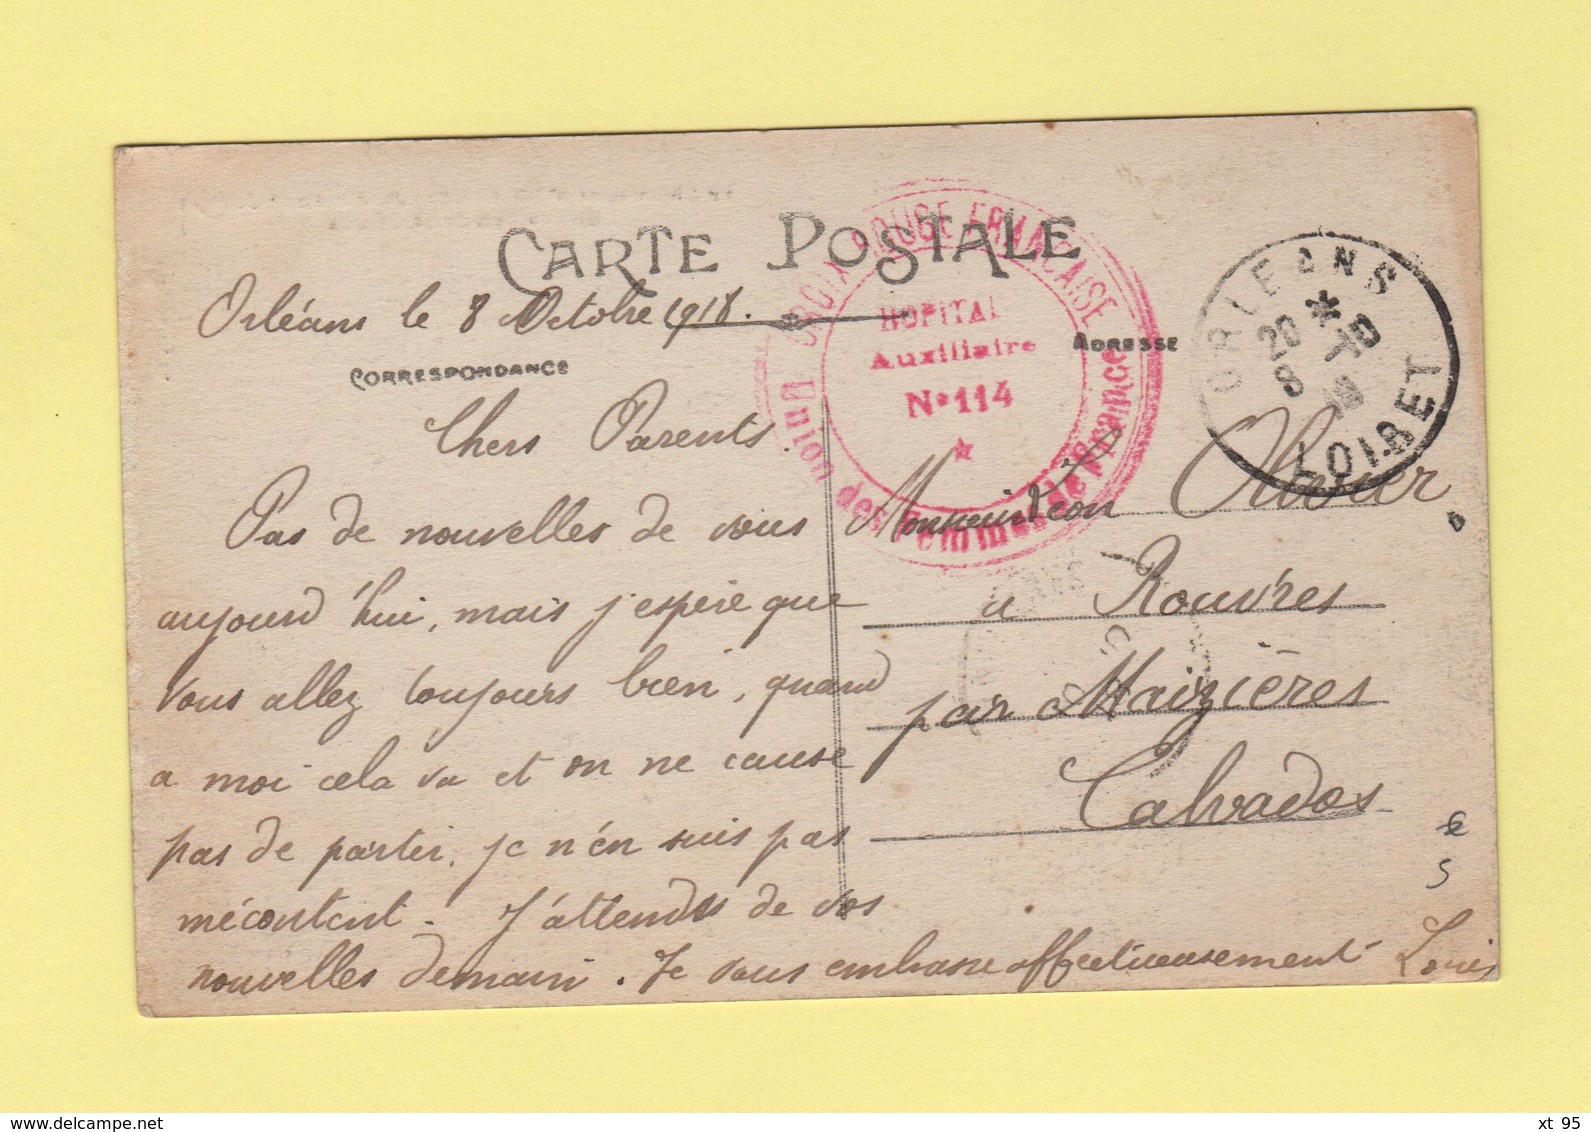 CARTE POSTALE
Orléans le 8 Octobre 1918.
CORRESPONDANCE
ADRESSE
Chers Parents.
Pas de nouvelles de vous
aujourd'hui, mais j'espère que
vous allez toujours bien, quand
a moi cela va et on ne cause
pas de partir, je n'en suis pas
mécontent. J'attends de vos
nouvelles demain. Je vous embrasse affectueusement Louis
Monsieur Léon Olivier
a Rouvres
par Maizières
Calvados
CROIX ROUGE FRANCAISE
HOPITAL
Auxiliaire
N° 114
Union des Femmes de France
ORLEANS
20 *
8 -10
18
LOIRET
5
www.delcampe.net
xt 95